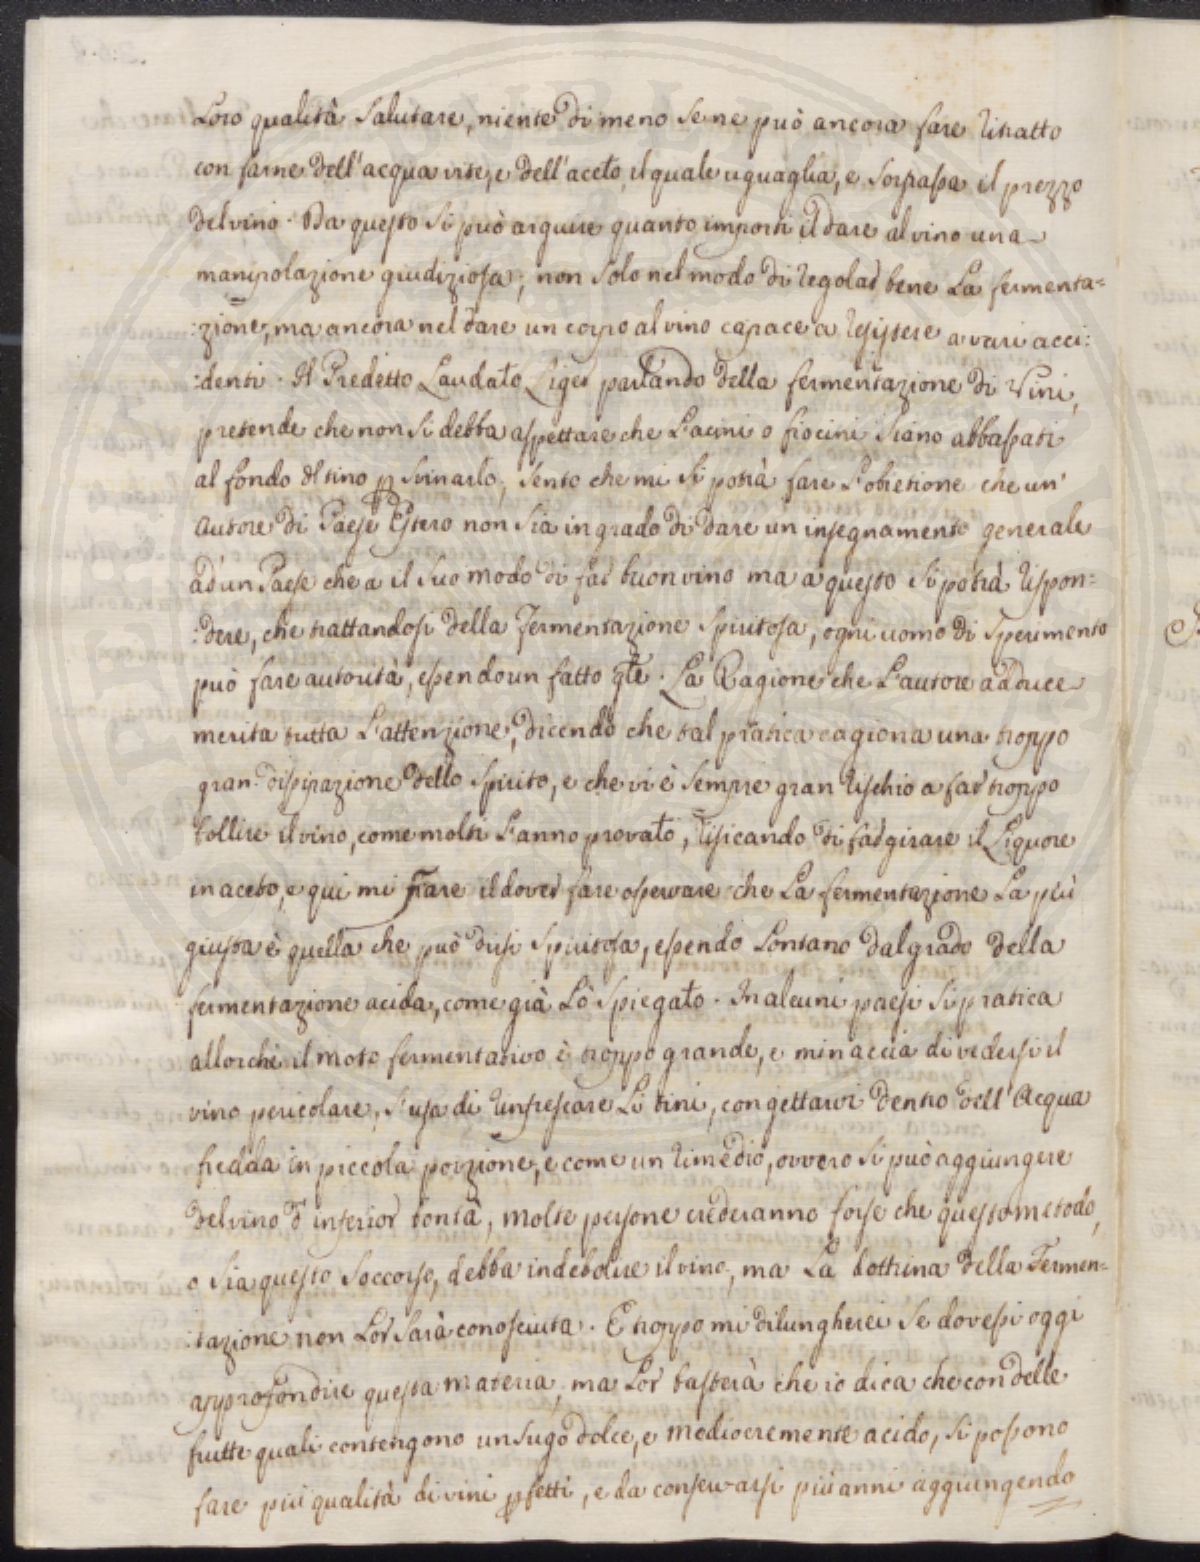 Loro qualità Salutare, niente di meno Se ne può ancora fare Ritratto
con farne dell'acqua vite, e dell'aceto, il quale uguaglia, e Sorpassa il prezzo
del vino. Da questo Si può arguire quanto importi il dare al vino una
manipolazione giudiziosa, non Solo nel modo di regolar bene La fermenta=
:zione, ma ancora nel dare un corpo al vino capace a resistere a varii acci:
:denti. Il Predetto Laudato Liger parlando della fermentazione di Vini,
pretende che non Si debba aspettare che L'acini o fiocini Siano abbassati
al fondo del tino p Svinarlo, Sento che mi Si potrà fare L'obietione che un'
Autore di Paese Estero non Sia in grado di dare un insegnamento generale
ad un Paese che a il Suo modo di far buon vino ma a questo Si potrà rispon=
:dere, che trattandosi della Fermentazione Spiritosa, ogni uomo di Sperimento
può fare autorità, essendo un fatto gle. La Ragione che L'autore adduce
merita tutta L'attenzione, dicendo che tal pratica cagiona una troppo
gran dispirazione dello Spirito, e che vi è Sempre gran rischio a far troppo
bollire il vino, come molti L'anno provato, risicando di far girare il Liquore
in aceto, e qui mi pare il dover fare osservare che La fermentazione La più
giusta è quella che può dirsi Spiritosa, essendo Lontano dal grado della
fermentazione acida, come già Lò Spiegato. In alcuni paesi Si pratica
allorchè il moto fermentativo è troppo grande, e minaccia di vedersi il
vino pericolare, S'usa di rinfrescare Li tini, con gettarvi dentro dell'Acqua
fredda in piccola porzione, e come un rimedio, ovvero Si può aggiungere
del vino d inferior bontà, molte persone crederanno forse che questo metodo,
o Sia questo Soccorso, debba indebolire il vino, ma La dottrina della Fermen=
:tazione non Lor Sarà conosciuta. E troppo mi dilungherei Se dovessi oggi
approfondire questa materia, ma Lor basterà che io dica che con delle
frutte quali contengono un Sugo dolce, e mediocremente acido, Si possono
fare più qualità di vini pfetti, e da conservarsi più anni aggiungendo